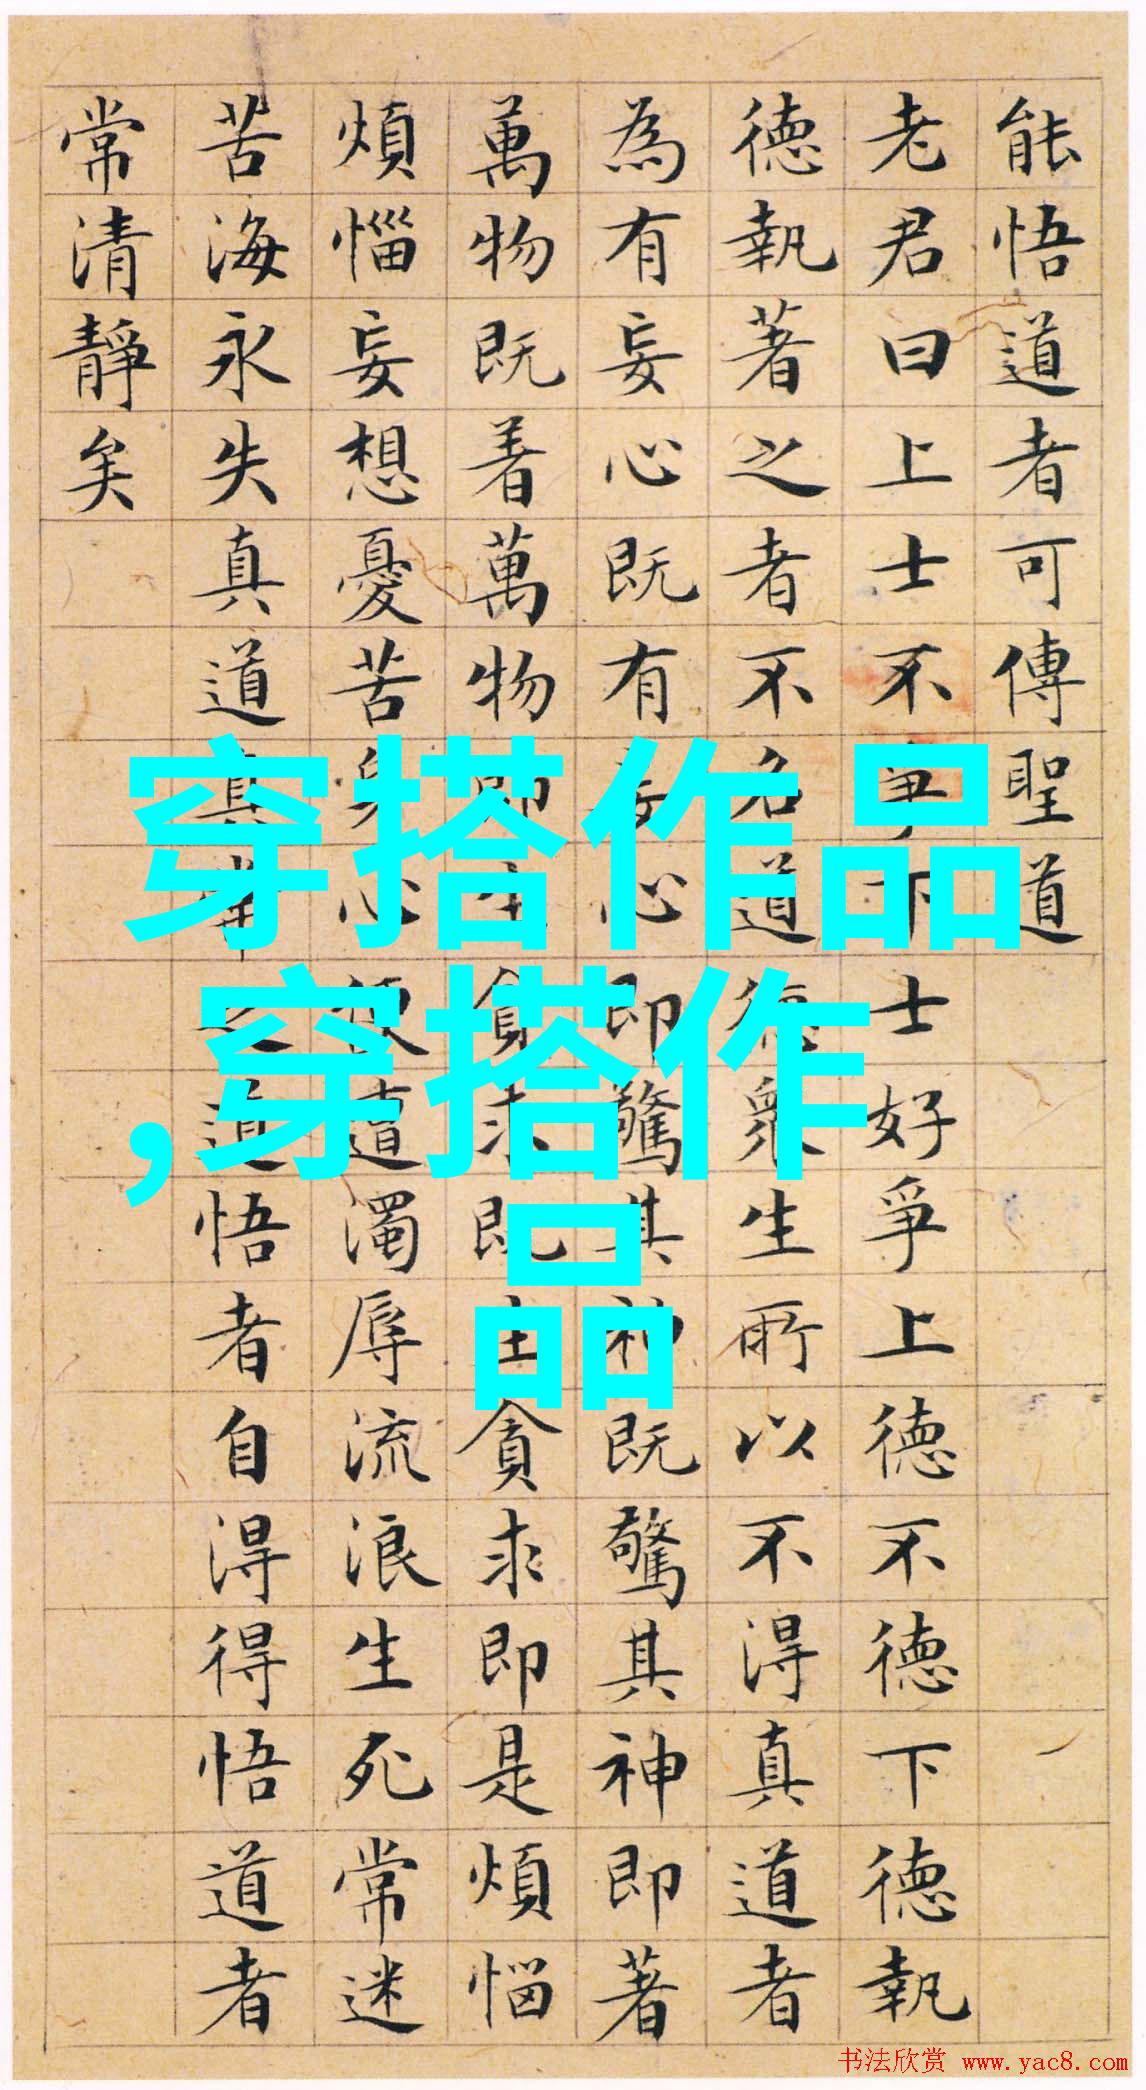 能悟道者可傳聖道
老君曰上士不爭下士好爭上德不德下德執
德執著之者不名道德眾生所以不得真道者
為有妄心既有妄心即驚其神既驚其神即著
萬物既着萬物即生貪求既生貪求即是煩惱
煩惱妄想憂苦身心便遭濁辱流浪生死常迷
苦海永失真道真常之道悟者自得得悟道者
常清靜矣
穿搭作品
,穿搭作
品
书法欣赏 www.yac8.com